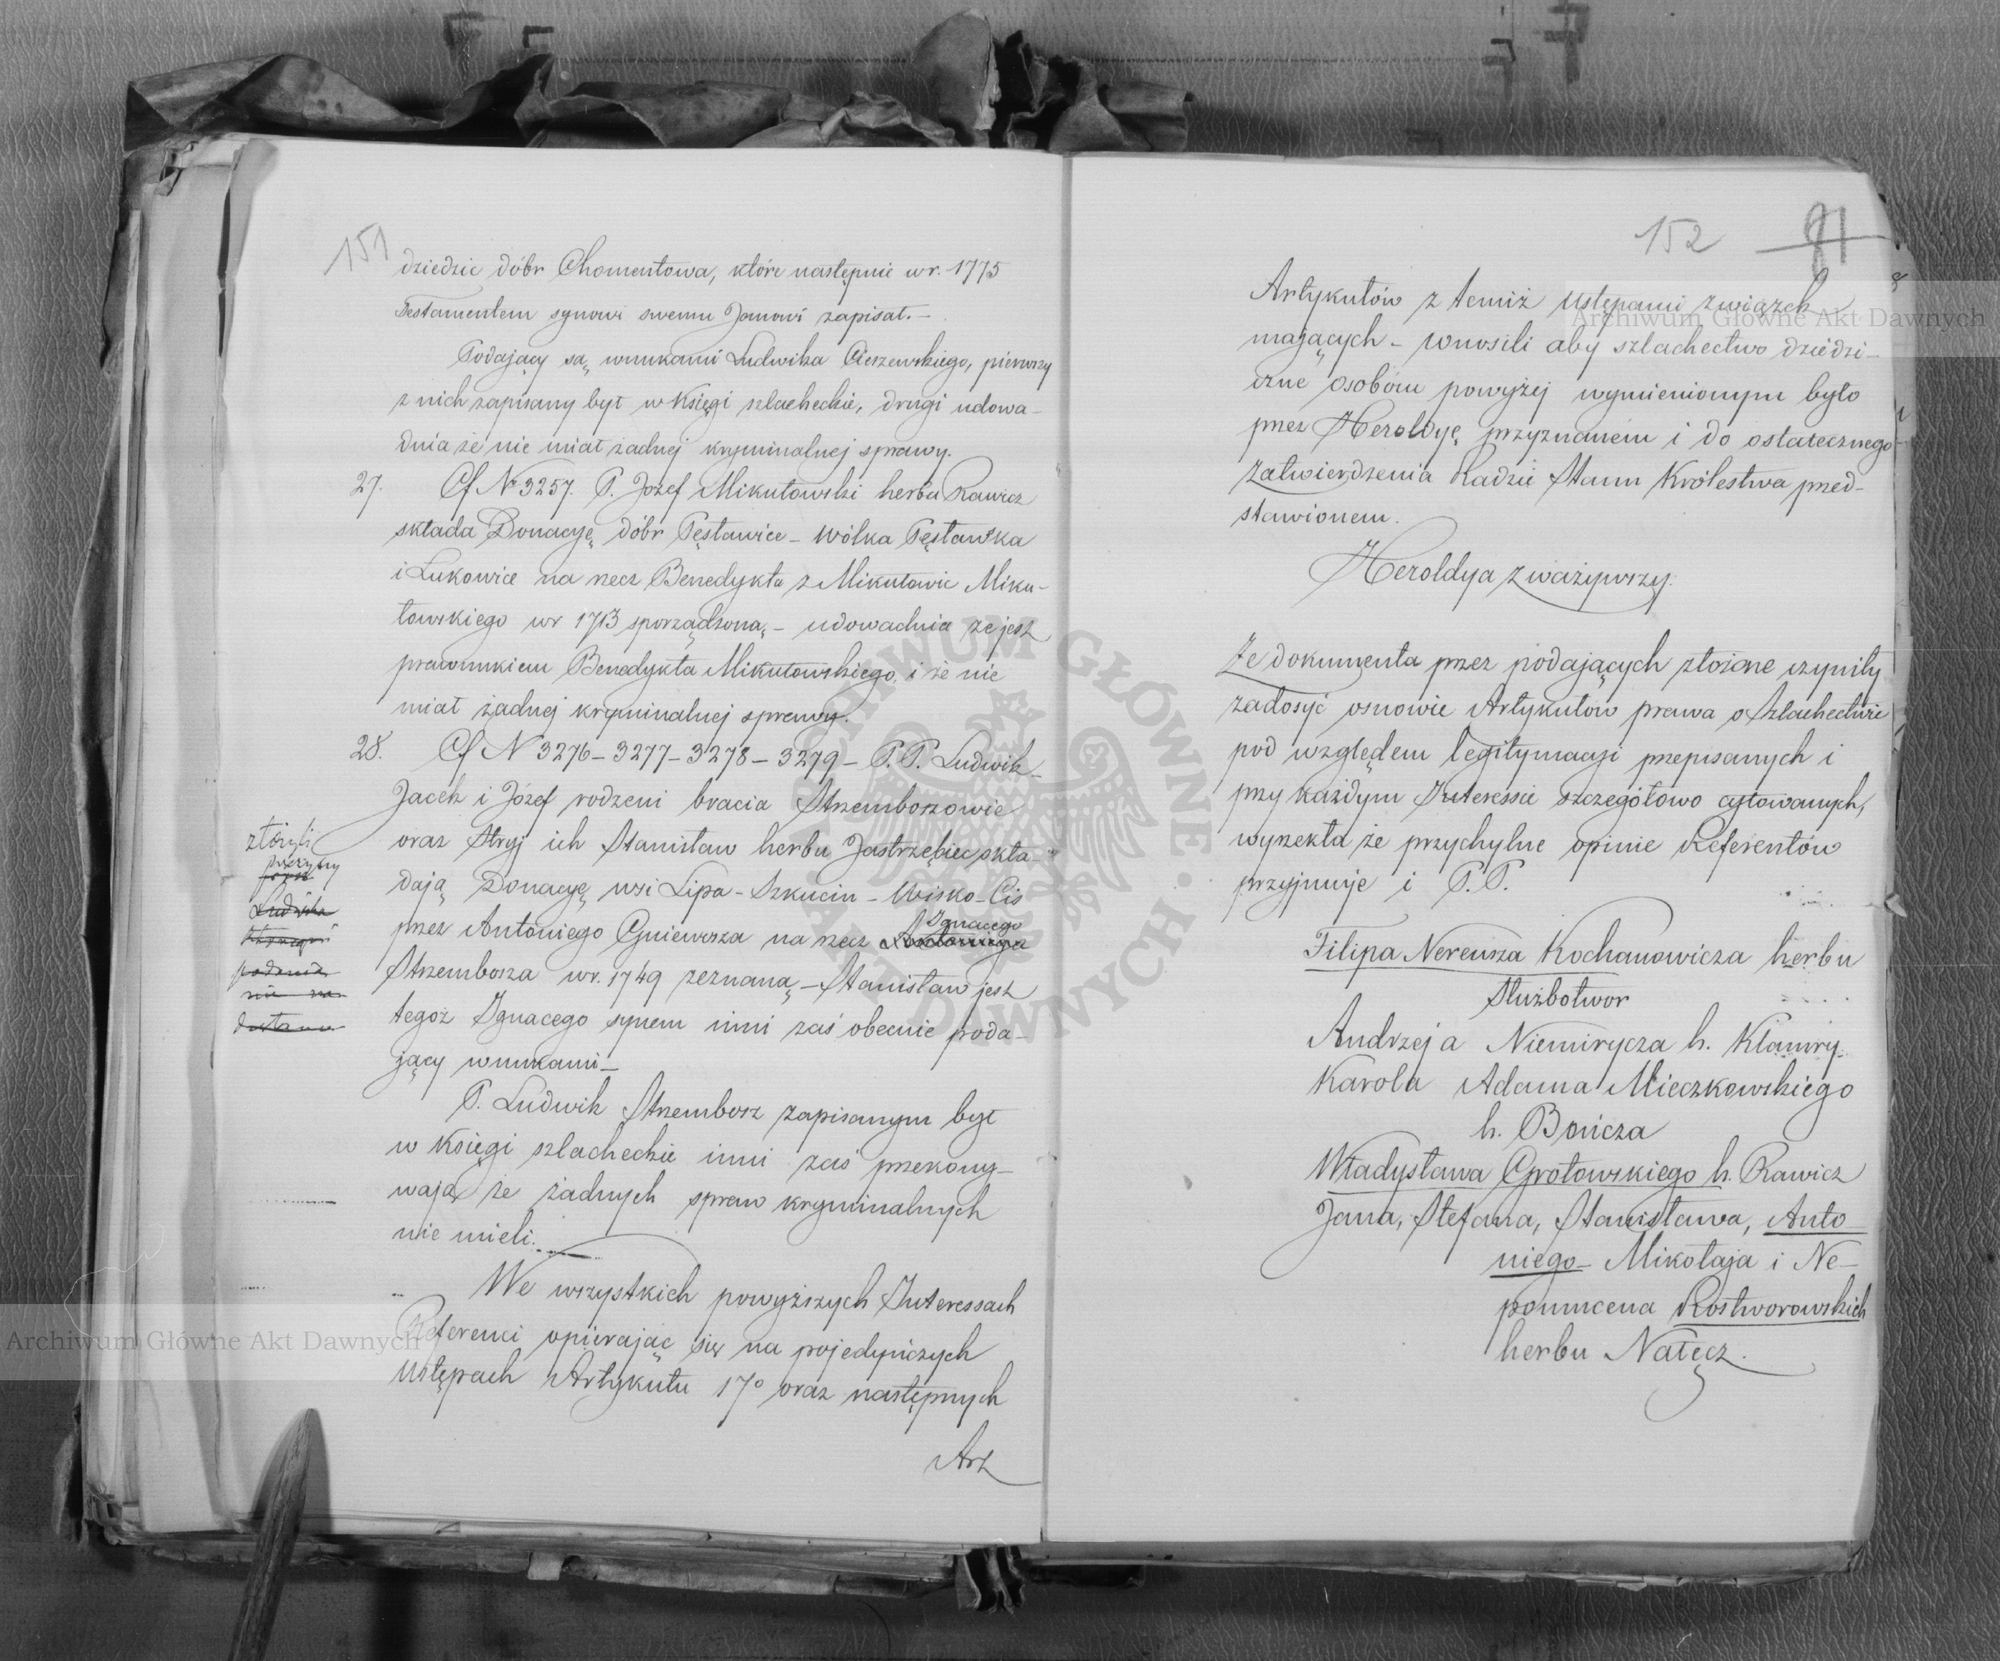 151
dziedzic dóbr Chomentowa, które następnie w r. 1775
Testamentem synowi swemu Janowi zapisał. –
Podający są wnukami Ludwika Cieszewskiego, pierwszy
z nich zapisany był w Księgi szlacheckie, drugi udowa-
dnia że nie miał żadnej kryminalnej sprawy.
27. Cf N 3257. P. Józef Mikułowski herbu Rawicz
składa Donacyę dóbr Pęsławice – Wólka Pęsławska
i Łukowice na rzecz Benedykta z Mikułowic Miku-
łowskiego w r 1713 sporządzoną, – udowadnia że jest
prawnukiem Benedykta Mikułowskiego, i że nie
miał żadnej kryminalnej sprawy.
28. Cf N 3276 – 3277 – 3278 – 3279 – P.P. Ludwik –
Jacek i Józef rodzeni bracia Strzemboszowie
oraz Stryj ich Stanisław herbu Jastrzębiec skła-
dają Donacyę wsi Lipa – Szkucin – Wisko – Cis
przez Antoniego Gniewosza na rzecz Ignacego
Strzembosza w r. 1749 zeznaną – Stanisław jest
tegoż Ignacego synem inni zaś obecnie poda-
jący wnukami –
P. Ludwik Strzembosz zapisanym był
w Księgi szlacheckie inni zaś przekony-
wają że żadnych spraw kryminalnych
nie mieli.
We wszystkich powyższych Interessach
Referenci opierając się na pojedyńczych
ustępach Artykułu 17º oraz następnych
Art
złożyli
Ludwika
podania
nie
152
91
Artykułów z temiż ustępami związek
mających – wnosili aby szlachectwo dziedzi-
czne osobom powyżej wymienionym było
przez Heroldyę przyznanem i do ostatecznego
zatwierdzenia Radzie Stanu Królestwa przed-
stawionem.
Heroldya zważywszy.
Że dokumenta przez podających złożone czyniły
zadosyć osnowie Artykułow prawa o Szlachectwie
pod względem legitymacyi przepisanych i
przy każdym Interessie szczegółowo cytowanych,
wyrzekła że przychylne opinie Referentów
przyjmuje i P.P.
Filipa Nereusza Kochanowicza herbu
Służbotwor
Andrzeja Niemirycza h. Kłamry
Karola Adama Mieczkowskiego
h. Bończa
Władysława Grotowskiego h. Rawicz
Jana, Stefana, Stanisława, Anto-
niego – Mikołaja i Ne-
pomucena Rostworowskich
herbu Nałęcz.
Archiwum Główne Akt Dawnych
Archiwum Główne Akt Dawnych
ARCHIWUM GŁÓWNE AKT DAWNYCH